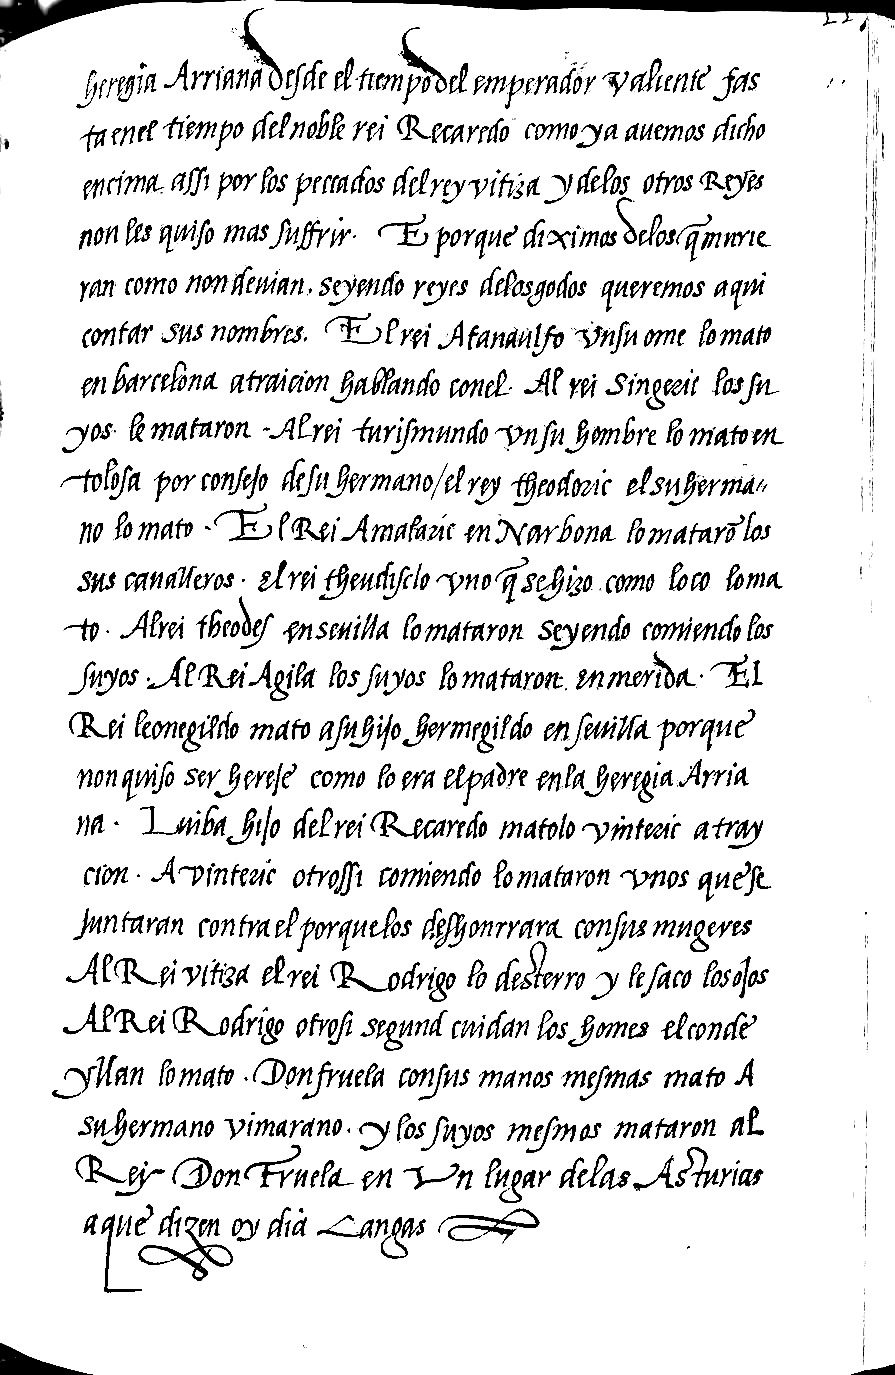 heregia Arriana desde el tiempo del emperador valiente fas
ta en el tiempo del noble rei Recaredo como ya auemos dicho
encima. assi por los peccados del rey vitiza y de los otros Reyes
non les quiso mas suffrir. E porque diximos delos q̃ murie
ran como non deuian, seyendo reyes delos godos queremos aqui
contar sus nombres. El rei Atanaulfo vn su ome lo mato
en barcelona a traicion hablando con el. Al rei Singeric los su
yos le mataron. Al rei turismundo vn su hombre lo mato en
tolosa por consejo de su hermano/ el rey theodoric el su herma"
no lo mato. El Rei Amalaric en Narbona lo matarõ los
sus caualleros. El rei theudisclo vno q̃ se hizo como loco lo ma
to. Al rei theodes en seuilla lo mataron seyendo comiendo los
suyos. Al Rei Agila los suyos lo mataron en merida. El
Rei leonegildo mato a su hijo hermegildo en seuilla porque
non quiso ser hereje como lo era el padre en la heregia Arria
na. Luiba hijo del rei Recaredo matolo vinteric a tray
cion. A vinteric otrossi comiendo lo mataron vnos que se
juntaran contra el porque los deshonrrara con sus mugeres
Al Rei vitiza el rei Rodrigo lo desterro y le saco los ojos
Al Rei Rodrigo otrosi segund cuidan los homes el conde
yllan lo mato. Don fruela con sus manos mesmas mato A
su hermano vimarano. y los suyos mesmos mataron al
Rey Don Fruela en Vn lugar de las Asturias
a que dizen oy dia Langas